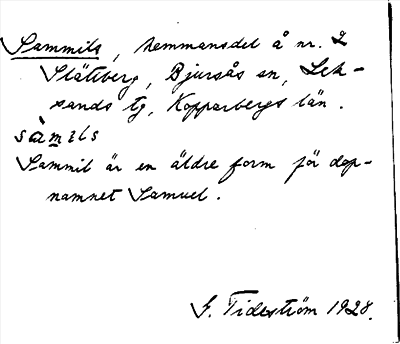 Sammils, hemmansdel å nr. 2
Slätberg, Bjursås sn, Lek-
sands tg, Kopparbergs län.
sàmils
Sammil är en äldre form för dop-
namnet Samuel.
G. Tideström 1928.